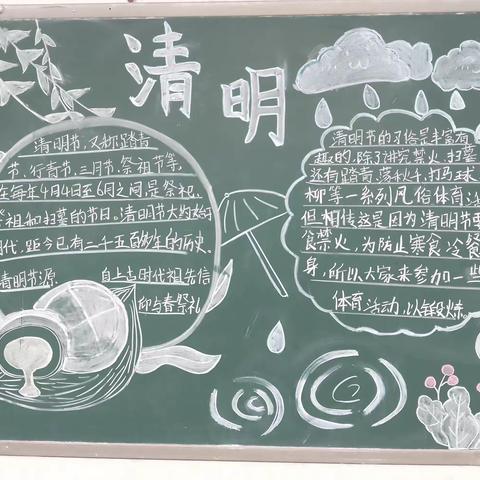 清明
清明节,又称踏青
节、行青节、三月节、祭祖节等,
在每年4月4日至6日之间,是祭祀、
祭祖和扫墓的节日。清明节大约始于
周代,距今已有二千五百多年的历史。
清明节源 自上古时代祖先信
仰与春祭礼
清明节的习俗是丰富有
趣的,除了讲究禁火、扫墓
还有踏青、荡秋千、打马球
柳等一系列风俗体育活
但相传这是因为清明节要
食禁火,为防止寒食冷餐
身,所以大家来参加一些
体育活动,以锻炼